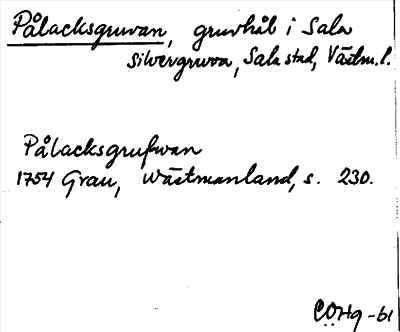 Pålacksgruvan, gruvhål i Sala
silvergruva, Sala stad, Västm.l.
Pålacksgrufwan
1754 Grau, Wästmanland, s. 230.
CÖHg -61